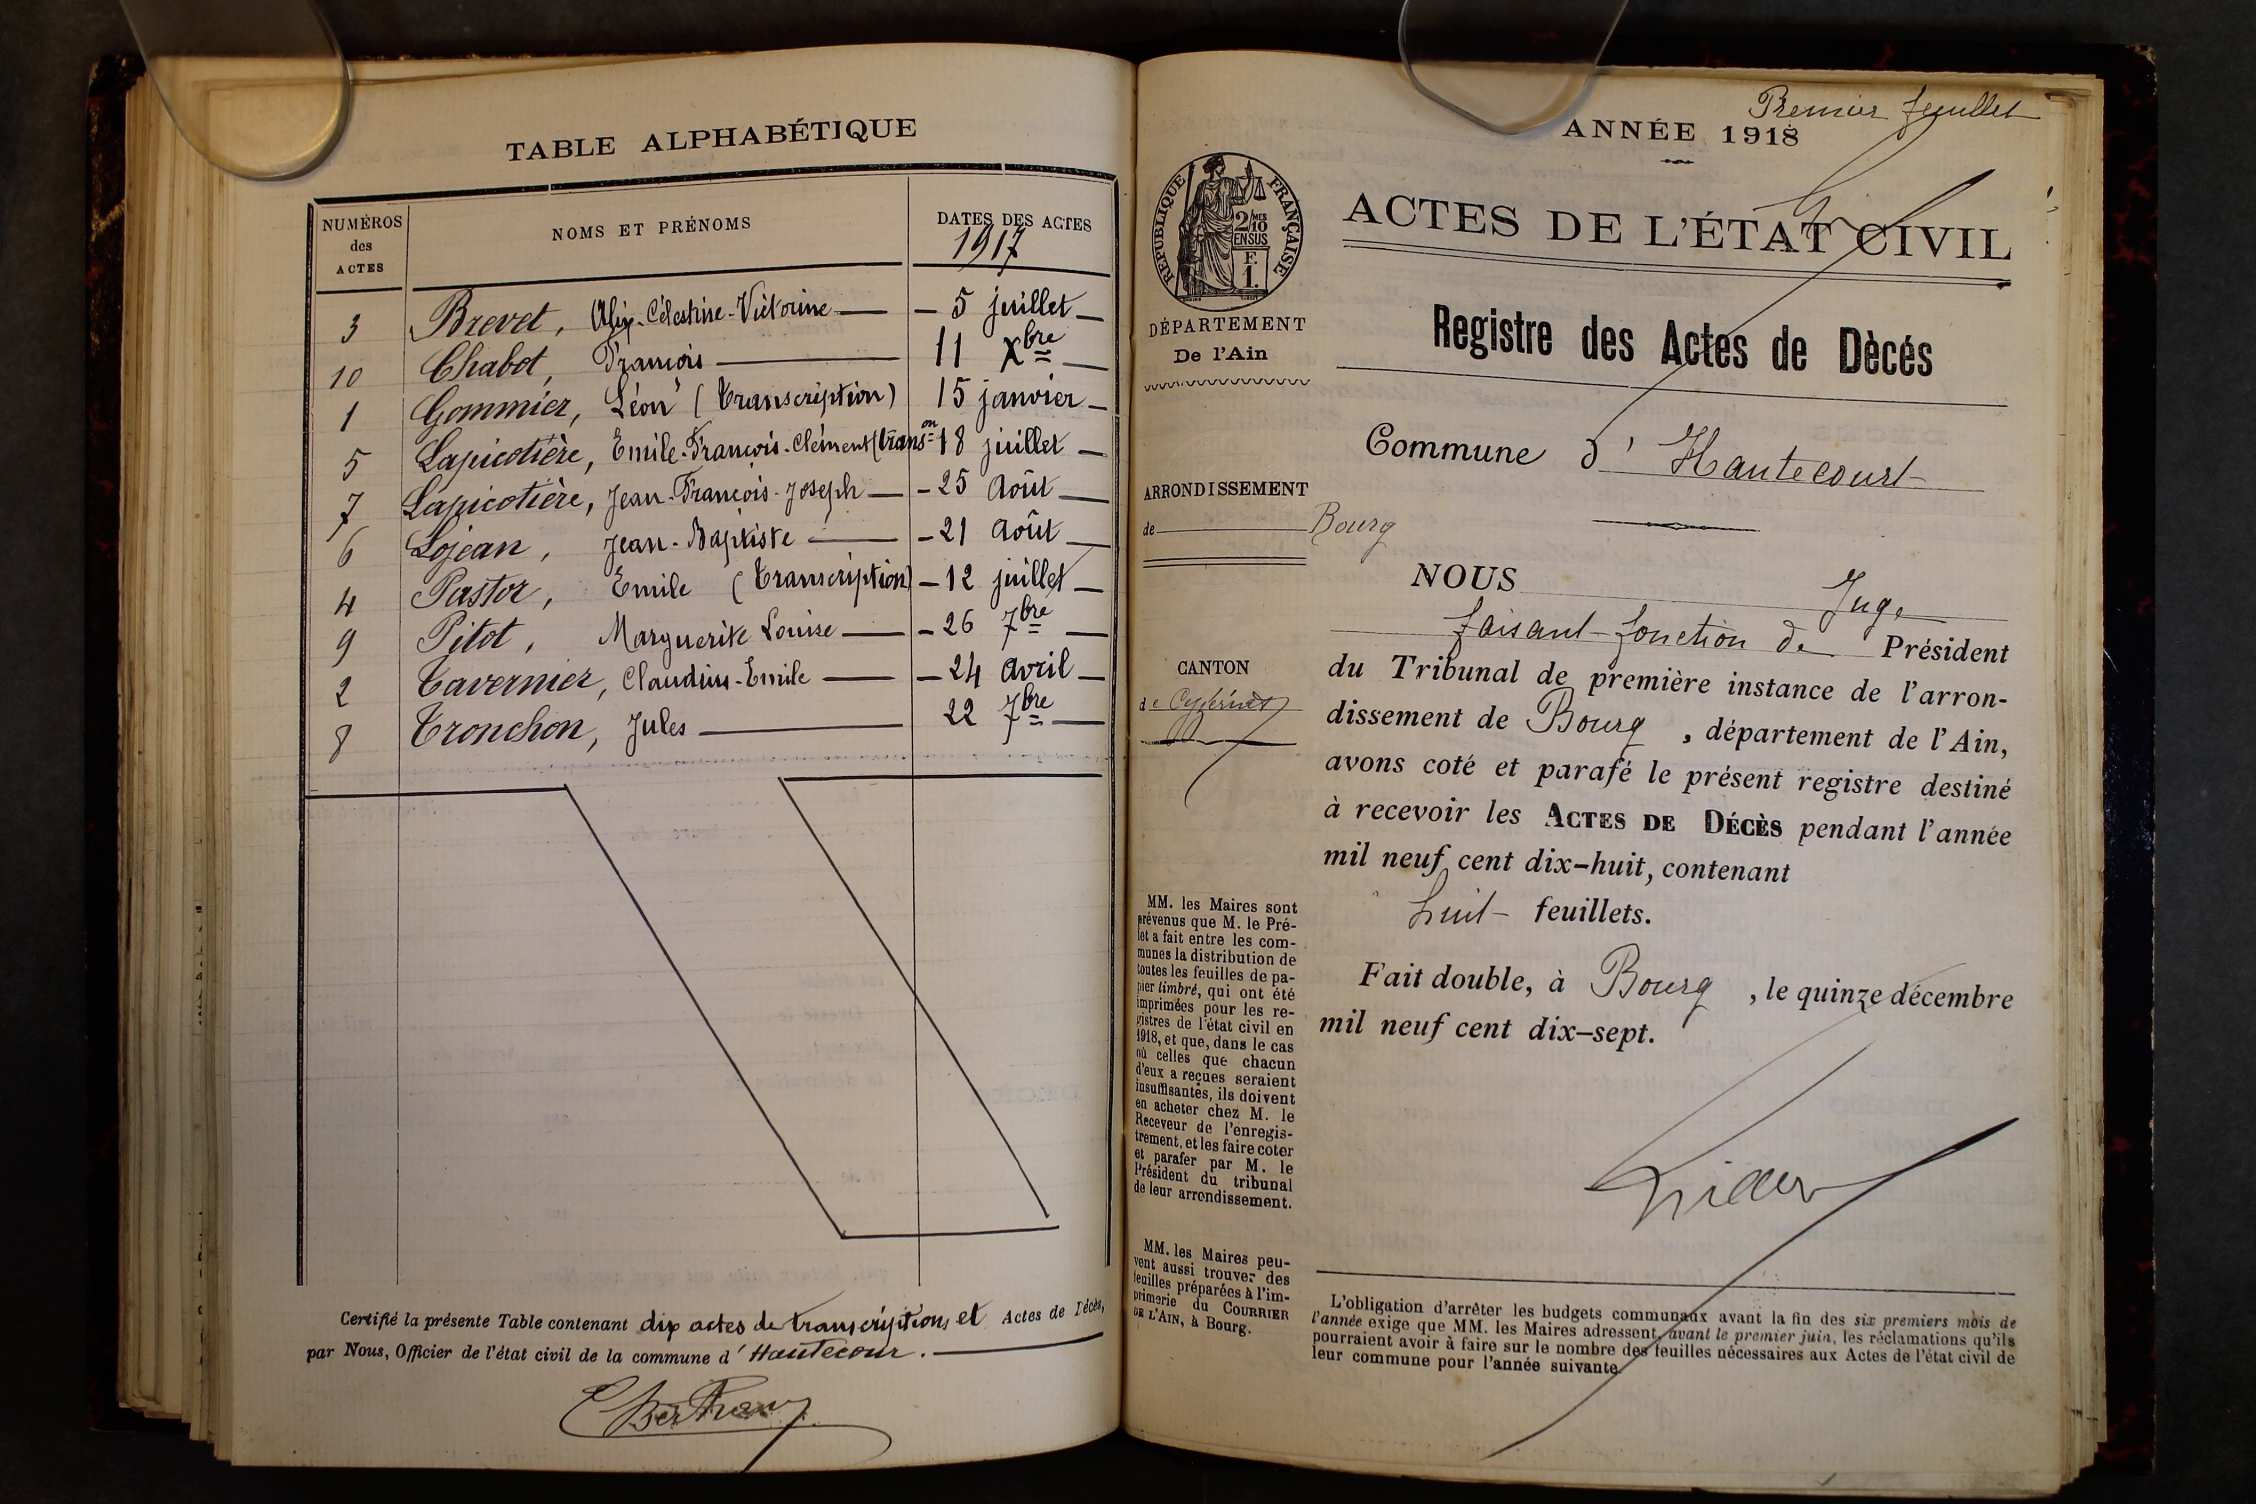 TABLE ALPHABÉTIQUE
NUMÉROS des ACTES
NOMS ET PRÉNOMS
DATES DES ACTES
1917
3 Brevet, Alix-Célestine-Victorine — 5 juillet —
10 Chabot, François — 11 Xbre —
1 Gommier, Léon (transcription) 15 janvier —
5 Lapicotière, Emile-François-Clément (transon 18 juillet —
7 Lapicotière, Jean-François-Joseph — 25 Août —
6 Lojean, Jean-Baptiste — 21 août —
4 Pastor, Emile (transcription) — 12 juillet —
9 Pitot, Marguerite Louise — 26 7bre —
2 Tavernier, Claudius-Emile — 24 avril —
8 Tronchon, Jules — 22 7bre —
Certifié la présente Table contenant dix actes de transcriptions et Actes de Décès,
par Nous, Officier de l'état civil de la commune d'Hautecour.
Premier feuillet
ANNÉE 1918
RÉPUBLIQUE FRANÇAISE
2/10 MES
EN SUS
F.
1.
DÉPARTEMENT
De l'Ain
ARRONDISSEMENT
de Bourg
CANTON
de Ceyzériat
MM. les Maires sont
prévenus que M. le Pré-
fet a fait entre les com-
munes la distribution de
toutes les feuilles de pa-
pier timbré, qui ont été
imprimées pour les re-
gistres de l'état civil en
1918, et que, dans le cas
où celles que chacun
d'eux a reçues seraient
insuffisantes, ils doivent
en acheter chez M. le
Receveur de l'enregis-
trement, et les faire coter
et parafer par M. le
Président du tribunal
de leur arrondissement.
MM. les Maires peu-
vent aussi trouver des
feuilles préparées à l'im-
primerie du COURRIER
DE L'AIN, à Bourg.
ACTES DE L'ÉTAT CIVIL
Registre des Actes de Dècés
Commune d'Hautecourt
NOUS Juge
faisant fonction de Président
du Tribunal de première instance de l'arron-
dissement de Bourg, département de l'Ain,
avons coté et parafé le présent registre destiné
à recevoir les ACTES DE DÉCÈS pendant l'année
mil neuf cent dix-huit, contenant
huit feuillets.
Fait double, à Bourg, le quinze décembre
mil neuf cent dix-sept.
L'obligation d'arrêter les budgets communaux avant la fin des six premiers mois de
l'année exige que MM. les Maires adressent, avant le premier juin, les réclamations qu'ils
pourraient avoir à faire sur le nombre des feuilles nécessaires aux Actes de l'état civil de
leur commune pour l'année suivante.